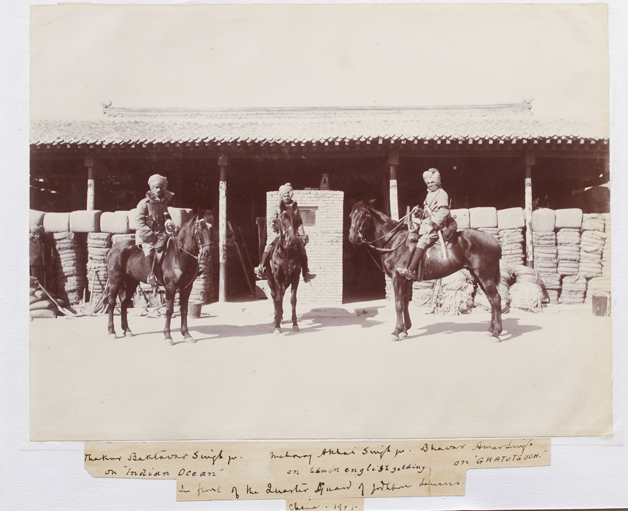 Thakur Baktawar Singh jr. Maharaj Akhai Singh jr. Bhawar Amar Singh
on "Indian Ocean" on english gelding on "GHATOTGUCH."
in front of the Quarter Guard of Jodhpur Lancers
China. 1901.